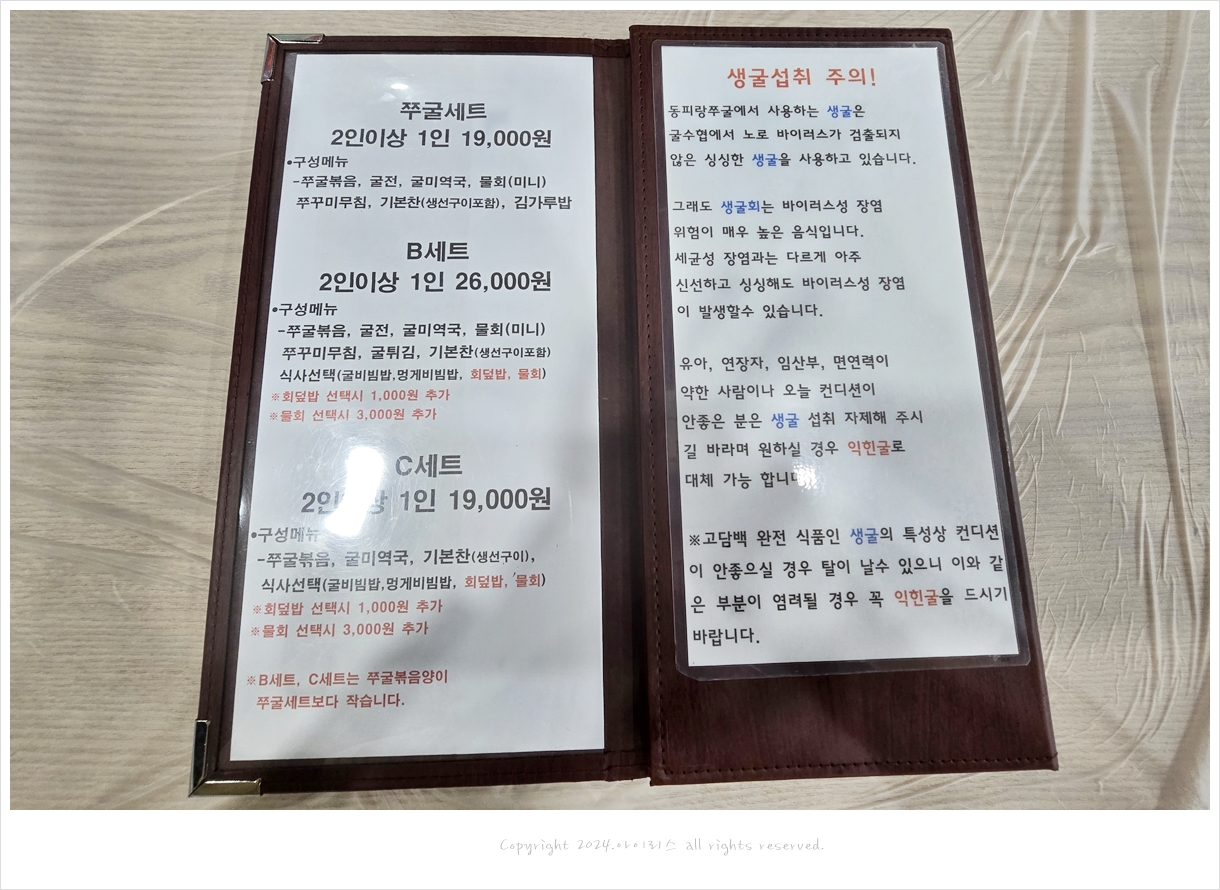 쭈굴세트
2인이상 1인 19,000원
•구성메뉴
-쭈굴볶음, 굴전, 굴미역국, 물회(미니)
쭈꾸미무침, 기본찬(생선구이포함), 김가루밥
B세트
2인이상 1인 26,000원
•구성메뉴
-쭈굴볶음, 굴전, 굴미역국, 물회(미니)
쭈꾸미무침, 굴튀김, 기본찬(생선구이포함)
식사선택(굴비빔밥,멍게비빔밥, 회덮밥, 물회)
※회덮밥 선택시 1,000원 추가
※물회 선택시 3,000원 추가
C세트
2인이상 1인 19,000원
•구성메뉴
-쭈굴볶음, 굴미역국, 기본찬(생선구이),
식사선택(굴비빔밥,멍게비빔밥, 회덮밥, 물회)
※회덮밥 선택시 1,000원 추가
※물회 선택시 3,000원 추가
※B세트, C세트는 쭈굴볶음양이
쭈굴세트보다 작습니다.
생굴섭취 주의!
동피랑쭈굴에서 사용하는 생굴은
굴수협에서 노로 바이러스가 검출되지
않은 싱싱한 생굴을 사용하고 있습니다.
그래도 생굴회는 바이러스성 장염
위험이 매우 높은 음식입니다.
세균성 장염과는 다르게 아주
신선하고 싱싱해도 바이러스성 장염
이 발생할수 있습니다.
유아, 연장자, 임산부, 면연력이
약한 사람이나 오늘 컨디션이
안좋은 분은 생굴 섭취 자제해 주시
길 바라며 원하실 경우 익힌굴로
대체 가능 합니다.
※고담백 완전 식품인 생굴의 특성상 컨디션
이 안좋으실 경우 탈이 날수 있으니 이와 같
은 부분이 염려될 경우 꼭 익힌굴을 드시기
바랍니다.
Copyright 2024.아이리스 all rights reserved.